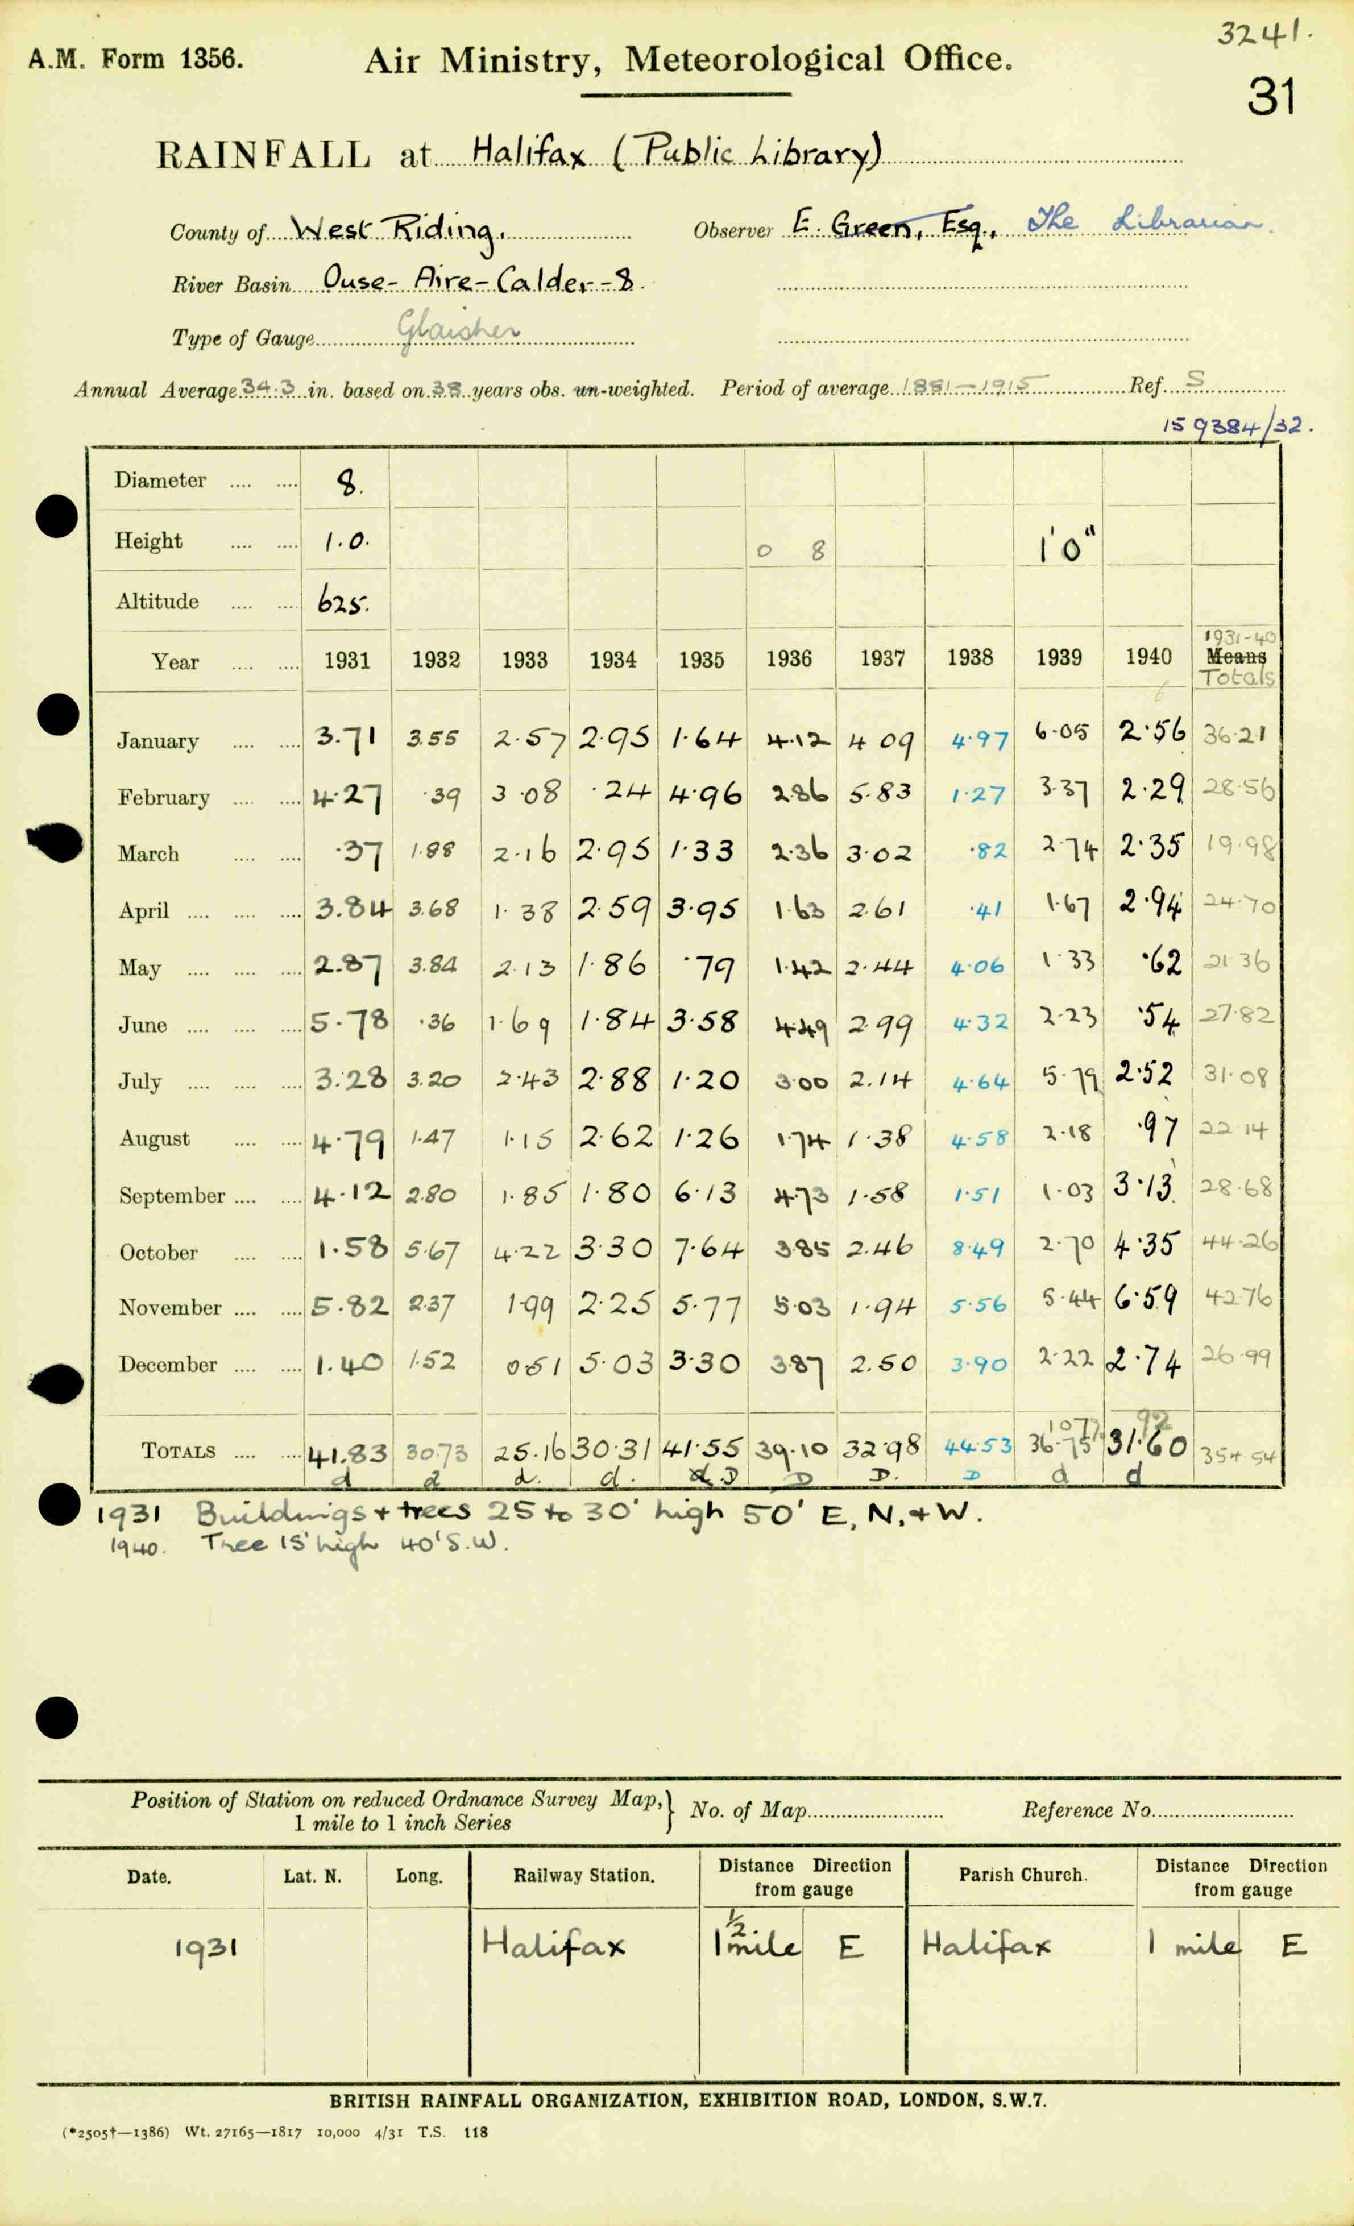 3241.
A.M. Form 1356. Air Ministry, Meteorological Office.
31
RAINFALL at Halifax (Public Library)
County of West Riding. Observer E. Green, Esq., The Librarian.
River Basin Ouse-Aire-Calder-8.
Type of Gauge Glaisher
Annual Average 34.3 in. based on 38 years obs. un-weighted. Period of average 1881-1915 Ref. S
159384/32.
Diameter 8.
Height 1.0. 0 8 1'0"
Altitude 625.
1931-40
Year 1931 1932 1933 1934 1935 1936 1937 1938 1939 1940 Means
Totals
January 3.71 3.55 2.57 2.95 1.64 4.12 4 09 4.97 6.05 2.56 36.21
February 4.27 .39 3.08 .24 4.96 2.86 5.83 1.27 3.37 2.29 28.56
March .37 1.88 2.16 2.95 1.33 2.36 3.02 .82 2.74 2.35 19.98
April 3.84 3.68 1.38 2.59 3.95 1.63 2.61 .41 1.67 2.94 24.70
May 2.87 3.84 2.13 1.86 .79 1.42 2.44 4.06 1.33 .62 21 36
June 5.78 .36 1.69 1.84 3.58 4.49 2.99 4.32 2.23 .54 27.82
July 3.28 3.20 2.43 2.88 1.20 3.00 2.14 4.64 5.79 2.52 31.08
August 4.79 1.47 1.15 2.62 1.26 1.74 1.38 4.58 2.18 .97 22 14
September 4.12 2.80 1.85 1.80 6.13 4.73 1.58 1.51 1.03 3.13 28.68
October 1.58 5.67 4.22 3.30 7.64 3.85 2.46 8.49 2.70 4.35 44.26
November 5.82 2.37 1.99 2.25 5.77 5.03 1.94 5.56 5.44 6.59 42.76
December 1.40 1.52 0.51 5.03 3.30 3.87 2.50 3.90 2.22 2.74 26.99
TOTALS 41.83 30.73 25.16 30.31 41.55 39.10 32.98 44.53 36.75 31.60 354 54
d d d. d. D D D. D d d
1931 Buildings + trees 25 to 30' high 50' E, N, + W.
1940. Tree 15' high 40' S.W.
Position of Station on reduced Ordnance Survey Map, } No. of Map Reference No.
1 mile to 1 inch Series
Date. Lat. N. Long. Railway Station. Distance Direction from gauge Parish Church. Distance Direction from gauge
1931 Halifax 1 1/2 mile E Halifax 1 mile E
BRITISH RAINFALL ORGANIZATION, EXHIBITION ROAD, LONDON, S.W.7.
(*2505†—1386) Wt. 27165—1817 10,000 4/31 T.S. 118